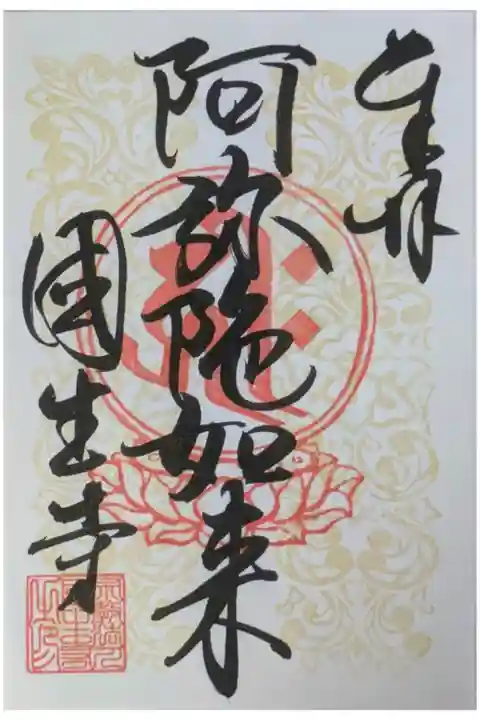 奉拝
阿弥陀如来
國生寺